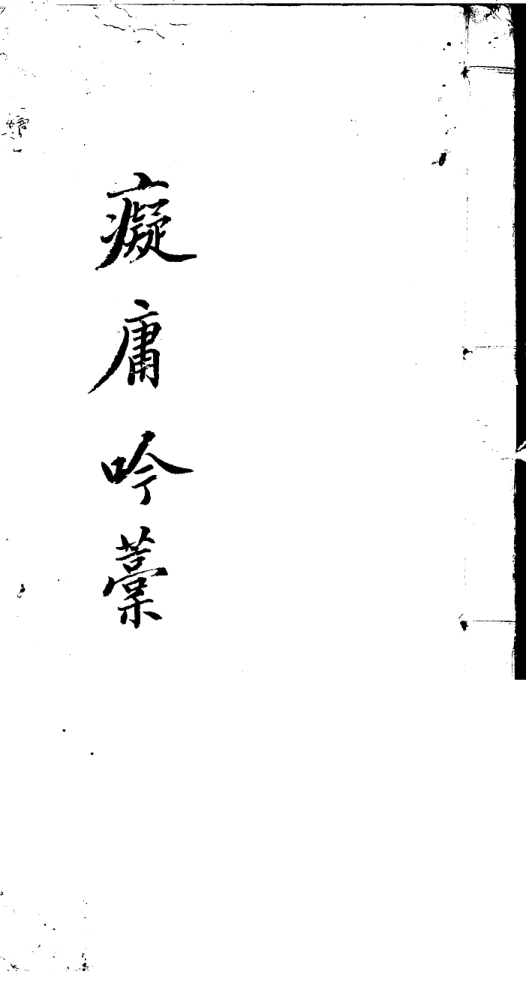 癡庸吟藁